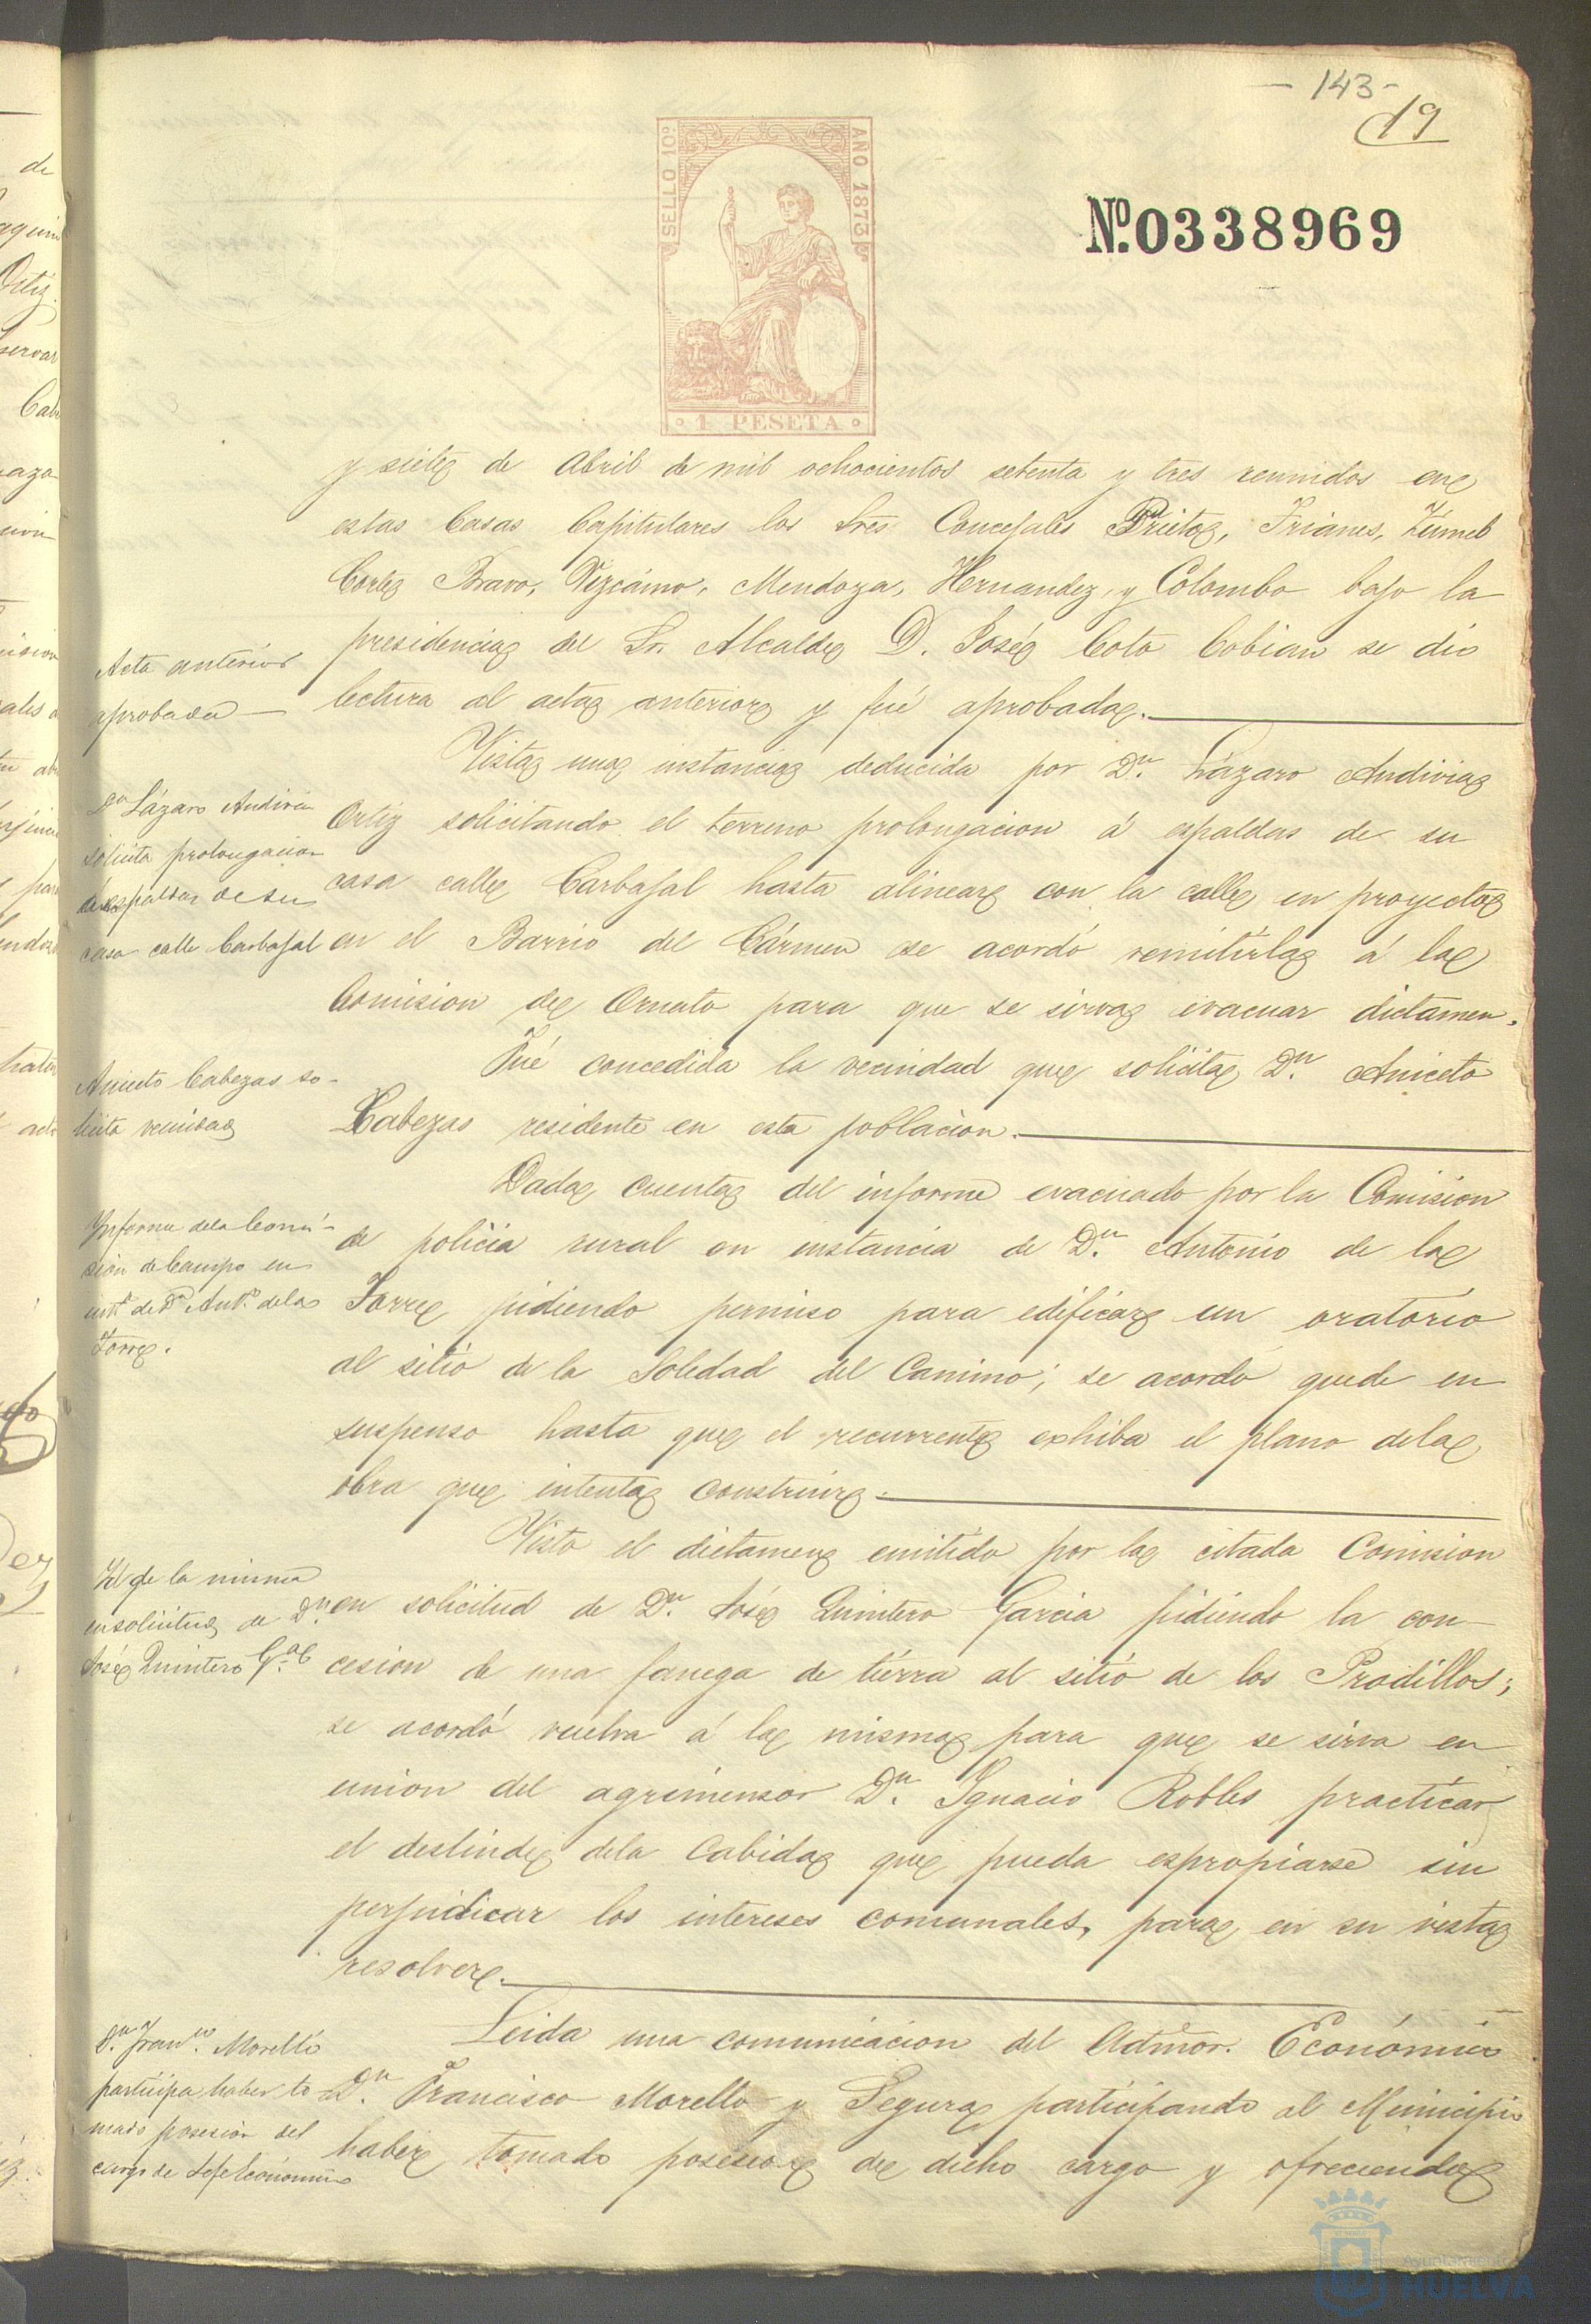 - 143 -
19
SELLO 10º
AÑO 1873
Nº. 0338969
1 PESETA
y siete de Abril de mil ochocientos setenta y tres reunidos en
estas Casas Capitulares los Sres. Concejales Prieto, Trianes,
Cortes Bravo, Vizcaino, Mendoza, Hernandez, y Colombo bajo la
presidencia del Sr. Alcalde D. José Coto Cobian se dió
lectura al acta anterior y fué aprobada.
Acta anterior
aprobada
Vista una instancia deducida por Dn. Lázaro Andivia
Ortiz solicitando el terreno prolongacion á espaldas de su
casa calle Carbajal hasta alinear con la calle en proyecto
en el Barrio del Cármen se acordó remitirla á la
Comision de Ornato para que se sirva evacuar dictamen.
Dn Lázaro Andivia
solicita prolongacion
á espaldas de su
casa calle Carbajal
Fué concedida la vecindad que solicita Dn. Aniceto
Cabezas residente en esta poblacion.
Aniceto Cabezas so-
licita vecindad
Dada cuenta del informe evacuado por la Comision
de policia rural en instancia de Dn. Antonio de la
Torre pidiendo permiso para edificar un oratorio
al sitio de la Soledad del Camino; se acordó quede en
suspenso hasta que el recurrente exhiba el plano dela
obra que intenta construir.
Informe dela Comi-
sion de Campo en
inst.ª de Dn Ant.º dela
Torre.
Visto el dictamen emitido por la citada Comision
en solicitud de Dn. José Quintero Garcia pidiendo la con-
cesion de una fanega de tierra al sitio de los Pradillos;
se acordó vuelva á la misma para que se sirva en
union del agrimensor Dn. Ignacio Robles practicar
el deslinde dela Cabida que pueda espropiarse sin
perjudicar los intereses comunales, para en su vista
resolver.
Id de la misma
en solicitud de Dn.
José Quintero G.ª
Leida una comunicacion del Admor. Económico
Dn. Francisco Morello y Segura participando al Municipio
haber tomado posesion de dicho cargo y ofreciendo
Dn. Franco. Morello
participa haber to
mado posesion del
cargo de Jefe Económico
Ayuntamiento
HUELVA